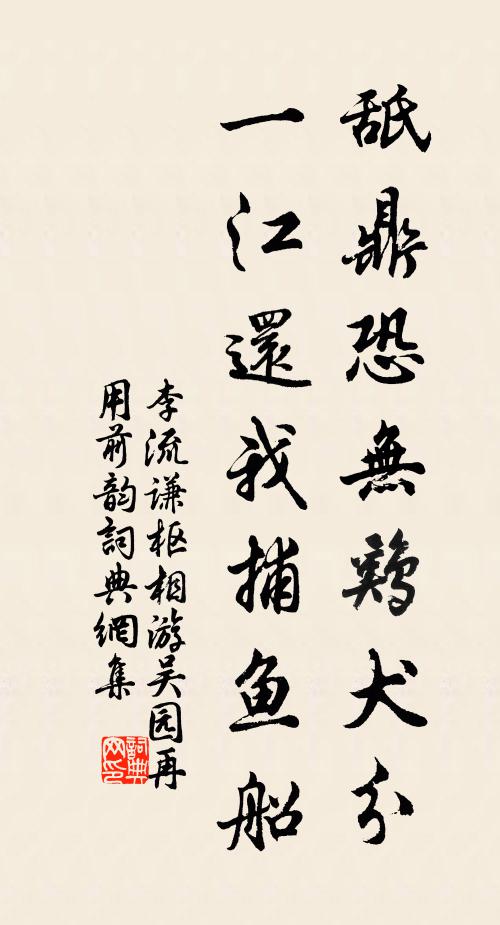 舐鼎恐無鷄犬分
一江還我捕鱼船
李流谦枢相游吴园再
用前韵詞典網集
詞典网印